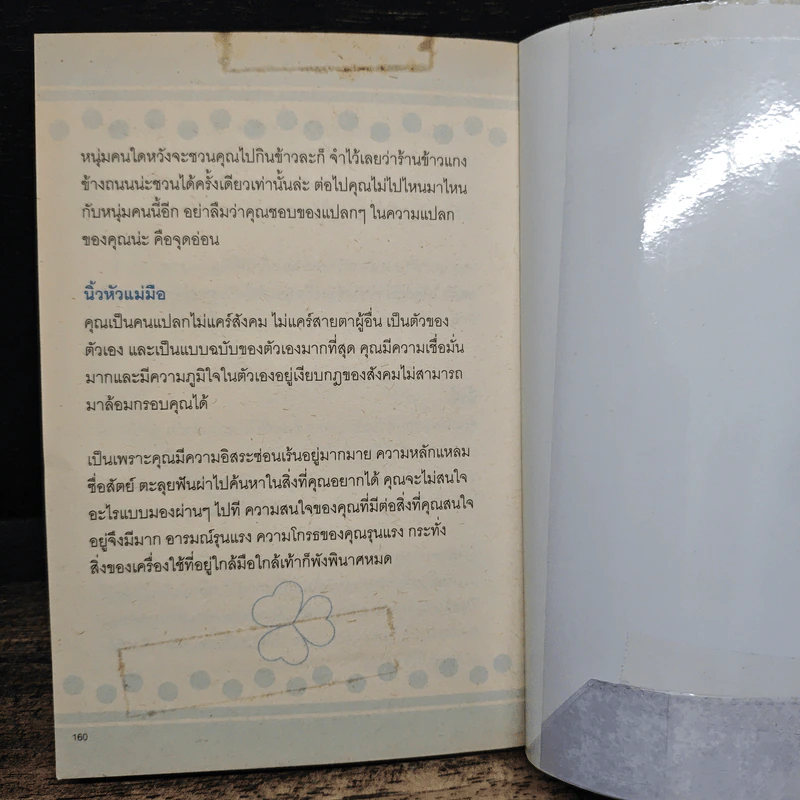 หนุ่มคนใดหวังจะชวนคุณไปกินข้าวละก็ จำไว้เลยว่าร้านข้าวแกง
ข้างถนนน่ะชวนได้ครั้งเดียวเท่านั้นล่ะ ต่อไปคุณไม่ไปไหนมาไหน
กับหนุ่มคนนี้อีก อย่าลืมว่าคุณชอบของแปลกๆ ในความแปลก
ของคุณน่ะ คือจุดอ่อน
นิ้วหัวแม่มือ
คุณเป็นคนแปลกไม่แคร์สังคม ไม่แคร์สายตาผู้อื่น เป็นตัวของ
ตัวเอง และเป็นแบบฉบับของตัวเองมากที่สุด คุณมีความเชื่อมั่น
มากและมีความภูมิใจในตัวเองอยู่เงียบกฎของสังคมไม่สามารถ
มาล้อมกรอบคุณได้
เป็นเพราะคุณมีความอิสระซ่อนเร้นอยู่มากมาย ความหลักแหลม
ซื่อสัตย์ ตะลุยฟันผ่าไปค้นหาในสิ่งที่คุณอยากได้ คุณจะไม่สนใจ
อะไรแบบมองผ่านๆ ไปที ความสนใจของคุณที่มีต่อสิ่งที่คุณสนใจ
อยู่จึงมีมาก อารมณ์รุนแรง ความโกรธของคุณรุนแรง กระทั่ง
สิ่งของเครื่องใช้ที่อยู่ใกล้มือใกล้เท้าก็พังพินาศหมด
160